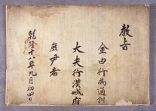 教旨
金由行爲通訓
大夫行漢城府
庶尹者
乾隆十八年九月初四日